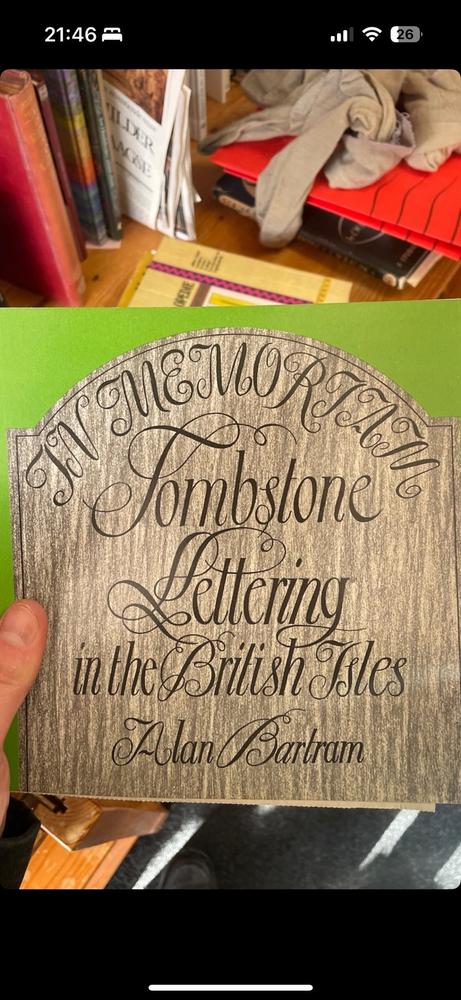 21:46
26
IN MEMORIAM
Tombstone
Lettering
in the British Isles
Alan Bartram